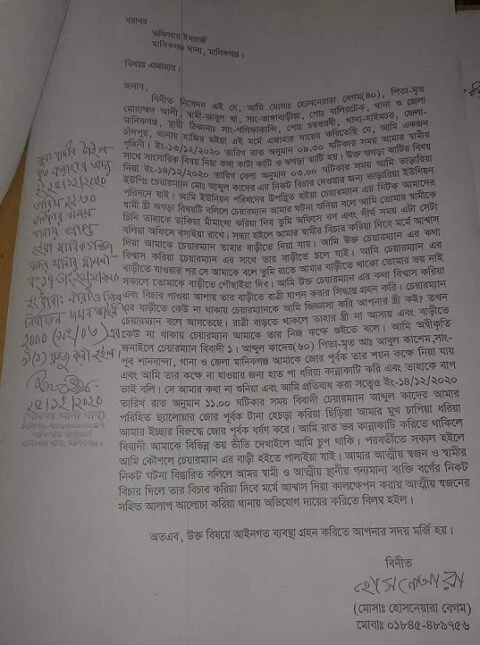 বরাবর
অফিসার ইনচার্জ
মানিকগঞ্জ থানা, মানিকগঞ্জ।
বিষয়ঃ এজাহার।
জনাব,
বিনীত নিবেদন এই যে, আমি মোসাঃ হোসনেয়ারা বেগম(৪০), পিতা-মৃত
মোহাম্মদ আলী, স্বামী-আবুল খা, সাং-ভাঙ্গাবাড়ীয়া, পোঃ বালিরটেক, থানা ও জেলা
মানিকগঞ্জ, স্থায়ী ঠিকানাঃ সাং-খলিফাকান্দি, পোঃ চরভৈরবী, থানা-হাইমচর, জেলা-
চাঁদপুর, থানায় হাজির হইয়া এই মর্মে এজাহার দায়ের করিতেছি যে, আমি একজন
গৃহিনী। ইং-১৩/১২/২০২০ তারিখ রাত অনুমান ০৯.০০ ঘটিকার সময় আমার স্বামীর
সাথে সাংসারিক বিষয় নিয়া কথা কাটা কাটি ও ঝগড়া ঝাটি হয়। উক্ত ঝগড়া ঝাটির বিষয়
নিয়া ইং-১৪/১২/২০২০ তারিখ বেলা অনুমান ০৩.০০ ঘটিকার সময় আমি ভাড়ারিয়া
ইউপিঃ চেয়ারম্যান মোঃ আব্দুল কাদের এর নিকট বিচার দেওয়ার জন্য ভাড়ারিয়া ইউনিয়ন
পরিষদে যাই। আমি ইউনিয়ন পরিষদের উপস্থিত হইয়া চেয়ারম্যান এর নিকট আমাদের
স্বামী স্ত্রী ঝগড়া বিষয়টি বলিলে চেয়ারম্যান আমার ঘটনা শুনিয়া বলে আমি তোমার স্বামীকে
চিনি তাহাকে ডাকিয়া মীমাংসা করিয়া দিব তুমি অফিসে বস এবং দীর্ঘ সময় এটা সেটা
বলিয়া অফিসে বসাইয়া রাখে। সন্ধা হইলে আমার স্বামীর বিচার করিয়া দিবে মর্মে আশ্বাস
দিয়া আমাকে চেয়ারম্যান তাহার বাড়ীতে নিয়া যায়। আমি উক্ত চেয়ারম্যান এর কথা
বিশ্বাস করিয়া চেয়ারম্যান এর সাথে তার বাড়ীতে চলে যাই। আমি চেয়ারম্যান এর
বাড়ীতে যাওয়ার পর সে আমাকে বলে তুমি রাতে আমার বাড়ীতে থাকো তোমার ভয় নাই
সকালে তোমাকে বাড়ীতে পৌছাইয়া দিব। আমি উক্ত চেয়ারম্যান এর কথা বিশ্বাস করিয়া
এবং বিচার পাওয়া আশায় তার বাড়ীতে রাত্রী যাপন করার সিদ্ধান্ত গ্রহন করি। চেয়ারম্যান
এর বাড়ীতে কেউ না থাকায় চেয়ারম্যানকে আমি জিজ্ঞাসা করি আপনার স্ত্রী কই? তখন
চেয়ারম্যান বলে আসতেছে। রাত্রী বাড়তে থাকলে তাহার স্ত্রী না আসায় এবং বাড়ীতে
কেউ না থাকায় চেয়ারম্যান আমাকে তার নিজ কক্ষে শুইতে বলে। আমি অস্বীকৃতি
জনাইলে চেয়ারম্যান বিবাদী ১। আব্দুল কাদের(৬০) পিতা-মৃত আঃ আবুল কাশেম সাং-
পূব শানবান্দা, থানা ও জেলা মানিকগঞ্জ আমাকে জোর পূর্বক তার শয়ন কক্ষে নিয়া যায়
এবং আমি তার কক্ষে না যাওয়ার জন্য হাত পা ধরিয়া কান্নাকাটি করি এবং তাহাকে বাপ
ভাই বলি। সে আমার কথা না শুনিয়া এবং আমি প্রতিবাধ করা সত্ত্বেও ইং-১৪/১২/২০২০
তারিখ রাত অনুমান ১১.০০ ঘটিকার সময় বিবাদী চেয়ারম্যান আব্দুল কাদের আমার
পরিহিত ছ্যালোয়ার জোর পূর্বক টানা হেচড়া করিয়া ছিড়িয়া আমার মুখ চাপিয়া ধরিয়া
আমার ইচ্ছার বিরুদ্ধে জোর পূর্বক ধর্ষন করে। আমি রাত ভর কান্নাকাটি করিতে থাকিলে
বিবাদী আমাকে বিভিন্ন ভয় ভীতি দেখাইলে আমি চুপ থাকি। পরবর্তীতে সকাল হইলে
আমি কৌশলে চেয়ারম্যান এর বাড়ী হইতে পালাইয়া যাই। আমার আত্মীয় স্বজন ও স্বামীর
নিকট ঘটনা বিস্তারিত বলিলে আমর স্বামী ও আত্মীয় স্থানীয় গন্যমান্য ব্যক্তি বর্গের নিকট
বিচার দিলে তার বিচার করিয়া দিবে মর্মে আশ্বাস দিয়া কালক্ষেপন করায় আত্মীয় স্বজনের
সহিত আলাপ আলোচা করিয়া থানায় অভিযোগ দায়ের করিতে বিলম্ব হইল।
অতএব, উক্ত বিষয়ে আইনগত ব্যবস্থা গ্রহন করিতে আপনার সদয় মর্জি হয়।
বিনীত
হোসনেআরা
(মোসাঃ হোসনেয়ারা বেগম)
মোবাঃ ০১৮৪৫-৪৮৯৭৫৬
এজাহার অদ্য
২০০০ (সং/০৩) এর
৯(১) রুজু করা হইল।
২৫/১২/২০২০